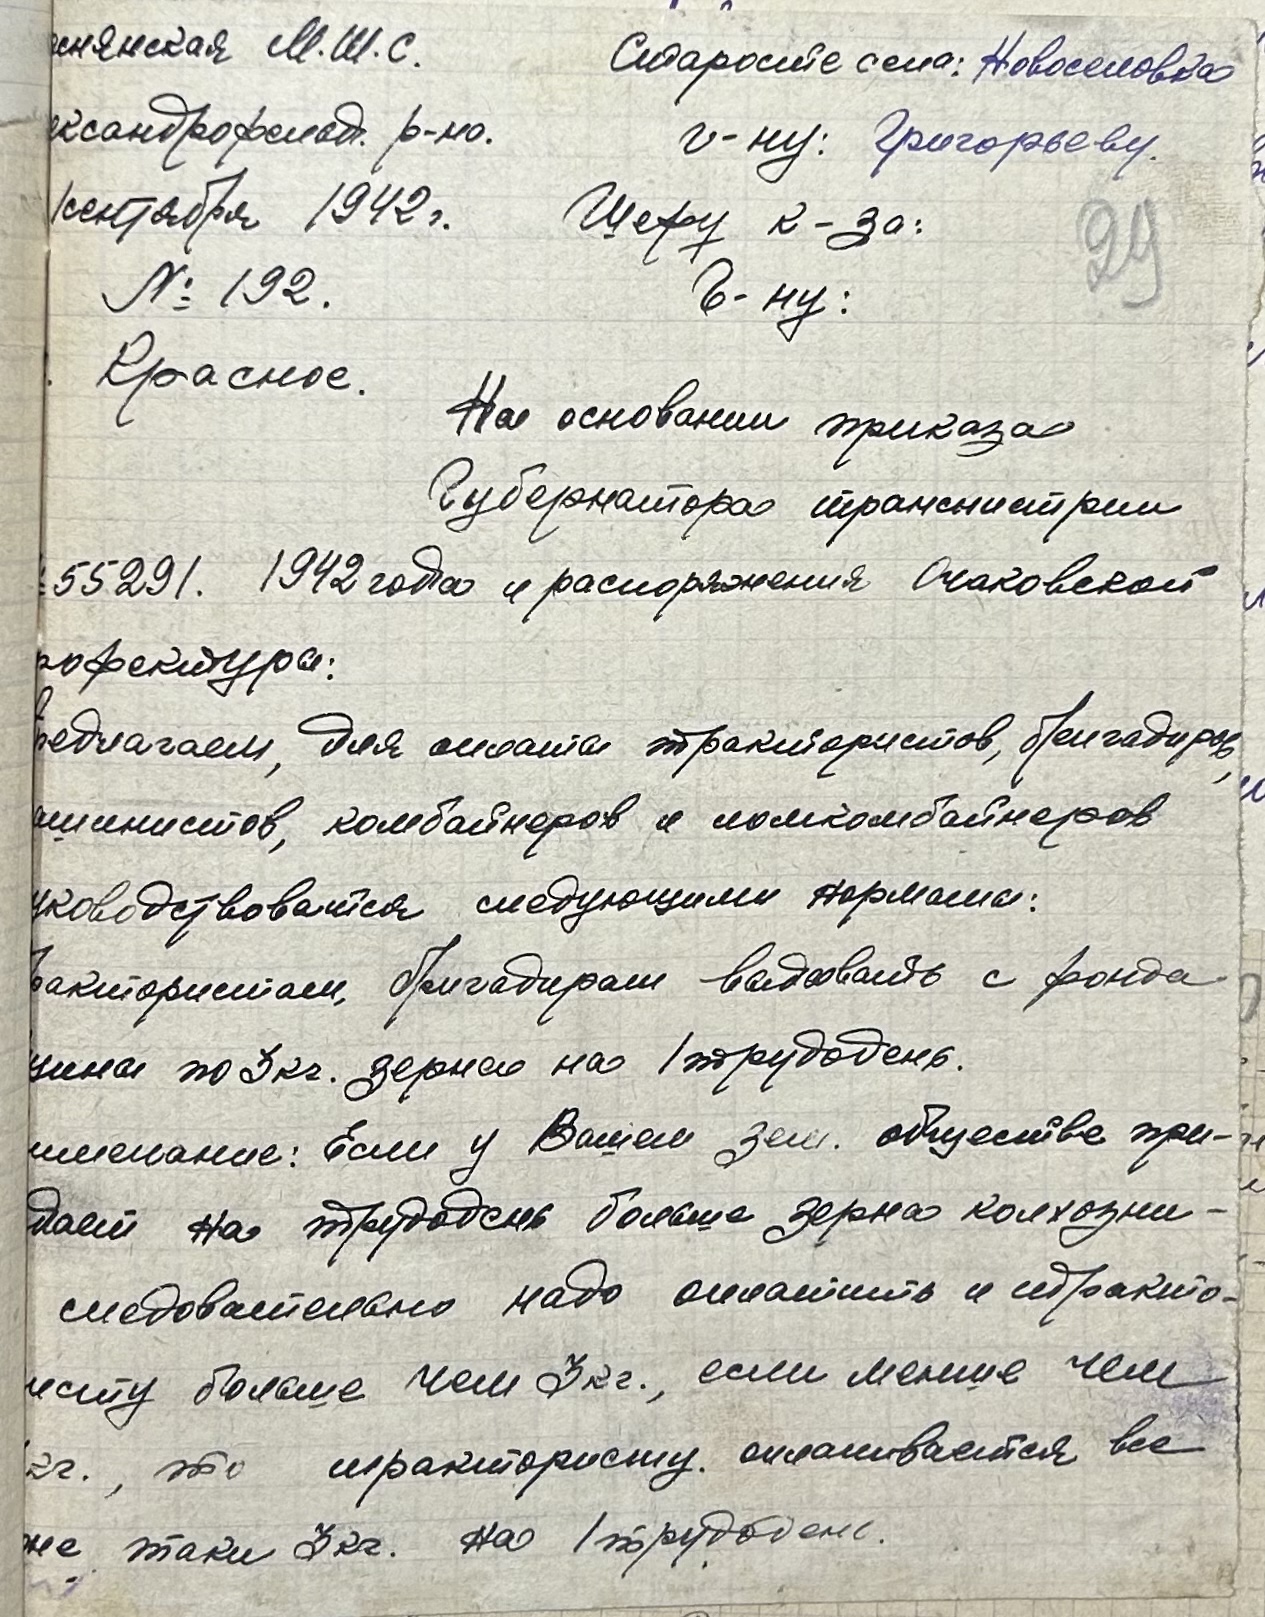 снянская М.Ш.С.
Старосте села: Новоселовка
ександрофельд. р-на.
г-ну: Григорьеву.
1 сентября 1942 г.
Шефу к-за:
29
№ 192.
Г-ну:
. Красное.
На основании приказа
Губернатора транснистрии
55291. 1942 года и распоряжения Очаковской
рофектура:
редлагаем, для оплаты трактористов, бригадиров,
ашинистов, комбайнеров и помкомбайнеров
уководствоваться следующими нормами:
рактористам, бригадирам выдавать с фонда
по 3 кг. зерна на 1 трудодень.
имечание: Если у Вашем зем. обществе при-
дает на трудодень больше зерна колхозни-
следовательно надо оплатить и тракто-
исту больше чем 3 кг., если менше чем
кг., то трактористу. оплачивается все
же таки 3 кг. на 1 трудодень.